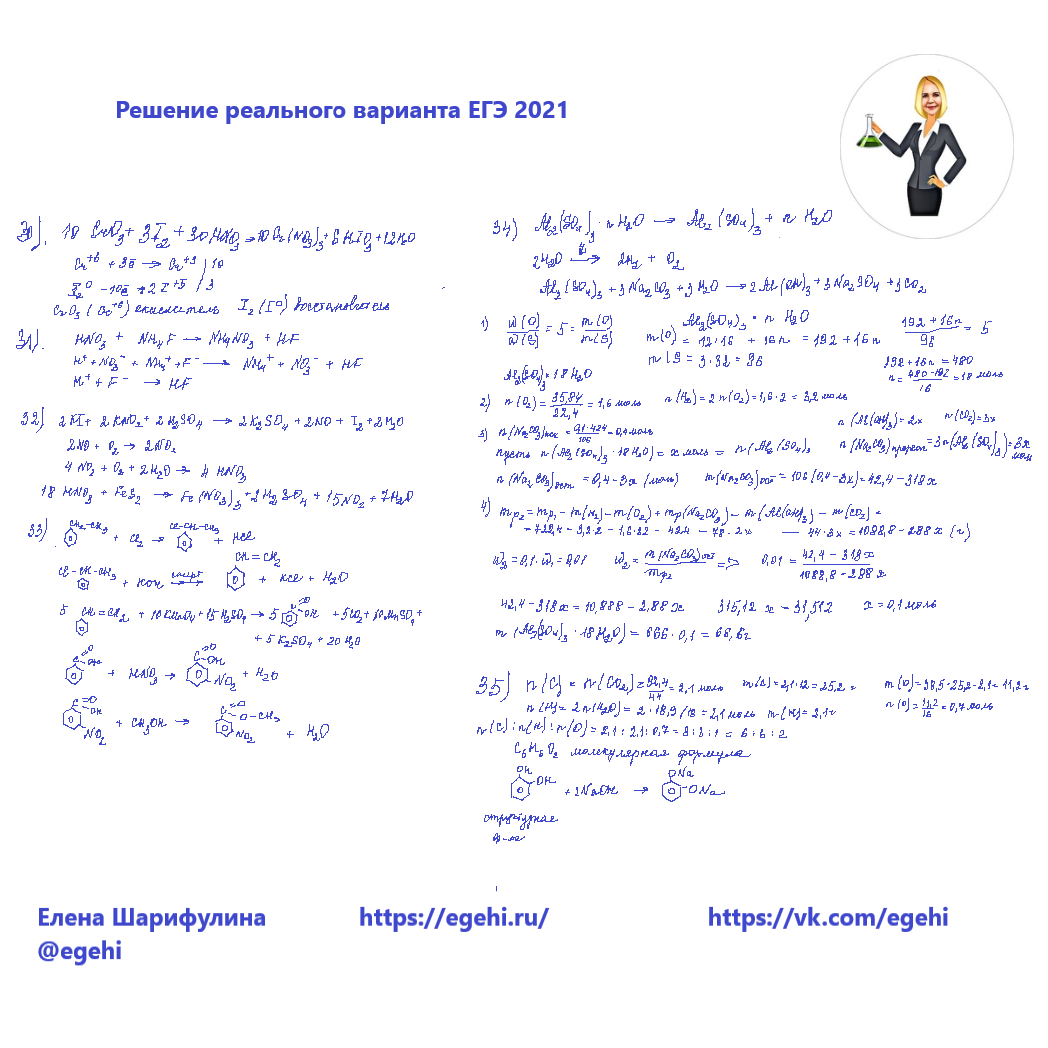 Решение реального варианта ЕГЭ 2021
30). 10 CrO3 + 3I2 + 30HNO3 → 10Cr(NO3)3 + 6HIO3 + 12H2O
Cr+6 + 3ē → Cr+3 | 10
I2 0 - 10ē → 2I+5 | 3
CrO3 (Cr+6) окислитель I2 (I0) восстановитель
31). HNO3 + NH4F → NH4NO3 + HF
H+ + NO3- + NH4+ + F- → NH4+ + NO3- + HF
H+ + F- → HF
32) 2KI + 2KNO2 + 2H2SO4 → 2K2SO4 + 2NO + I2 + 2H2O
2NO + O2 → 2NO2
4NO2 + O2 + 2H2O → 4HNO3
18 HNO3 + FeS2 → Fe(NO3)3 + 2H2SO4 + 15NO2 + 7H2O
33) CH2-CH3 + Cl2 → Cl-CH-CH3 + HCl
Cl-CH-CH3 + KOH спирт → CH=CH2 + KCl + H2O
5 CH=CH2 + 10KMnO4 + 15H2SO4 → 5 C=O OH + 5CO2 + 10MnSO4 +
+ 5K2SO4 + 20H2O
C=O OH + HNO3 → C=O OH NO2 + H2O
C=O OH NO2 + CH3OH → C=O O-CH3 NO2 + H2O
34) Al2(SO4)3 · nH2O → Al2(SO4)3 + n H2O
2H2O → 2H2 + O2
Al2(SO4)3 + 3Na2CO3 + 3H2O → 2Al(OH)3 + 3Na2SO4 + 3CO2
1) w(O)/w(S) = 5 = m(O)/m(S) Al2(SO4)3 · n H2O
m(O) = 12·16 + 16n = 192 + 16n (192 + 16n)/96 = 5
m(S) = 3·32 = 96 192 + 16n = 480
Al2(SO4)3 · 18H2O n = (480-192)/16 = 18 моль
2) n(O2) = 35,84/22,4 = 1,6 моль n(H2) = 2n(O2) = 1,6·2 = 3,2 моль
3) n(Na2CO3)исх = 0,1·424/106 = 0,4 моль n(Al(OH)3) = 2x n(CO2) = 3x
пусть n(Al2(SO4)3 · 18H2O) = x моль = n(Al2(SO4)3) n(Na2CO3)прореаг = 3n(Al2(SO4)3) = 3x моль
n(Na2CO3)ост = 0,4-3x (моль) m(Na2CO3)ост = 106(0,4-3x) = 42,4-318x
4) mр2 = mр1 - m(H2) - m(O2) + mр(Na2CO3) - m(Al(OH)3) - m(CO2) =
= 722,4 - 3,2·2 - 1,6·32 - 424 - 78·2x - 44·3x = 1088,8 - 288x (г)
w2 = 0,1·w1 = 0,01 w2 = m(Na2CO3)ост/mр2 => 0,01 = (42,4-318x)/(1088,8-288x)
42,4-318x = 10,888-2,88x 315,12x = 31,512 x = 0,1 моль
m(Al2(SO4)3 · 18H2O) = 666·0,1 = 66,6г
35) n(C) = n(CO2) = 92,4/44 = 2,1 моль m(C) = 2,1·12 = 25,2 г m(O) = 38,5-25,2-2,1 = 11,2г
n(H) = 2n(H2O) = 2·18,9/18 = 2,1 моль m(H) = 2,1г n(O) = 11,2/16 = 0,7 моль
n(C) : n(H) : n(O) = 2,1 : 2,1 : 0,7 = 3 : 3 : 1 = 6 : 6 : 2
C6H6O2 молекулярная формула
OH OH + 2NaOH → ONa ONa
структурная
ф-ла
Елена Шарифулина https://egehi.ru/ https://vk.com/egehi
@egehi